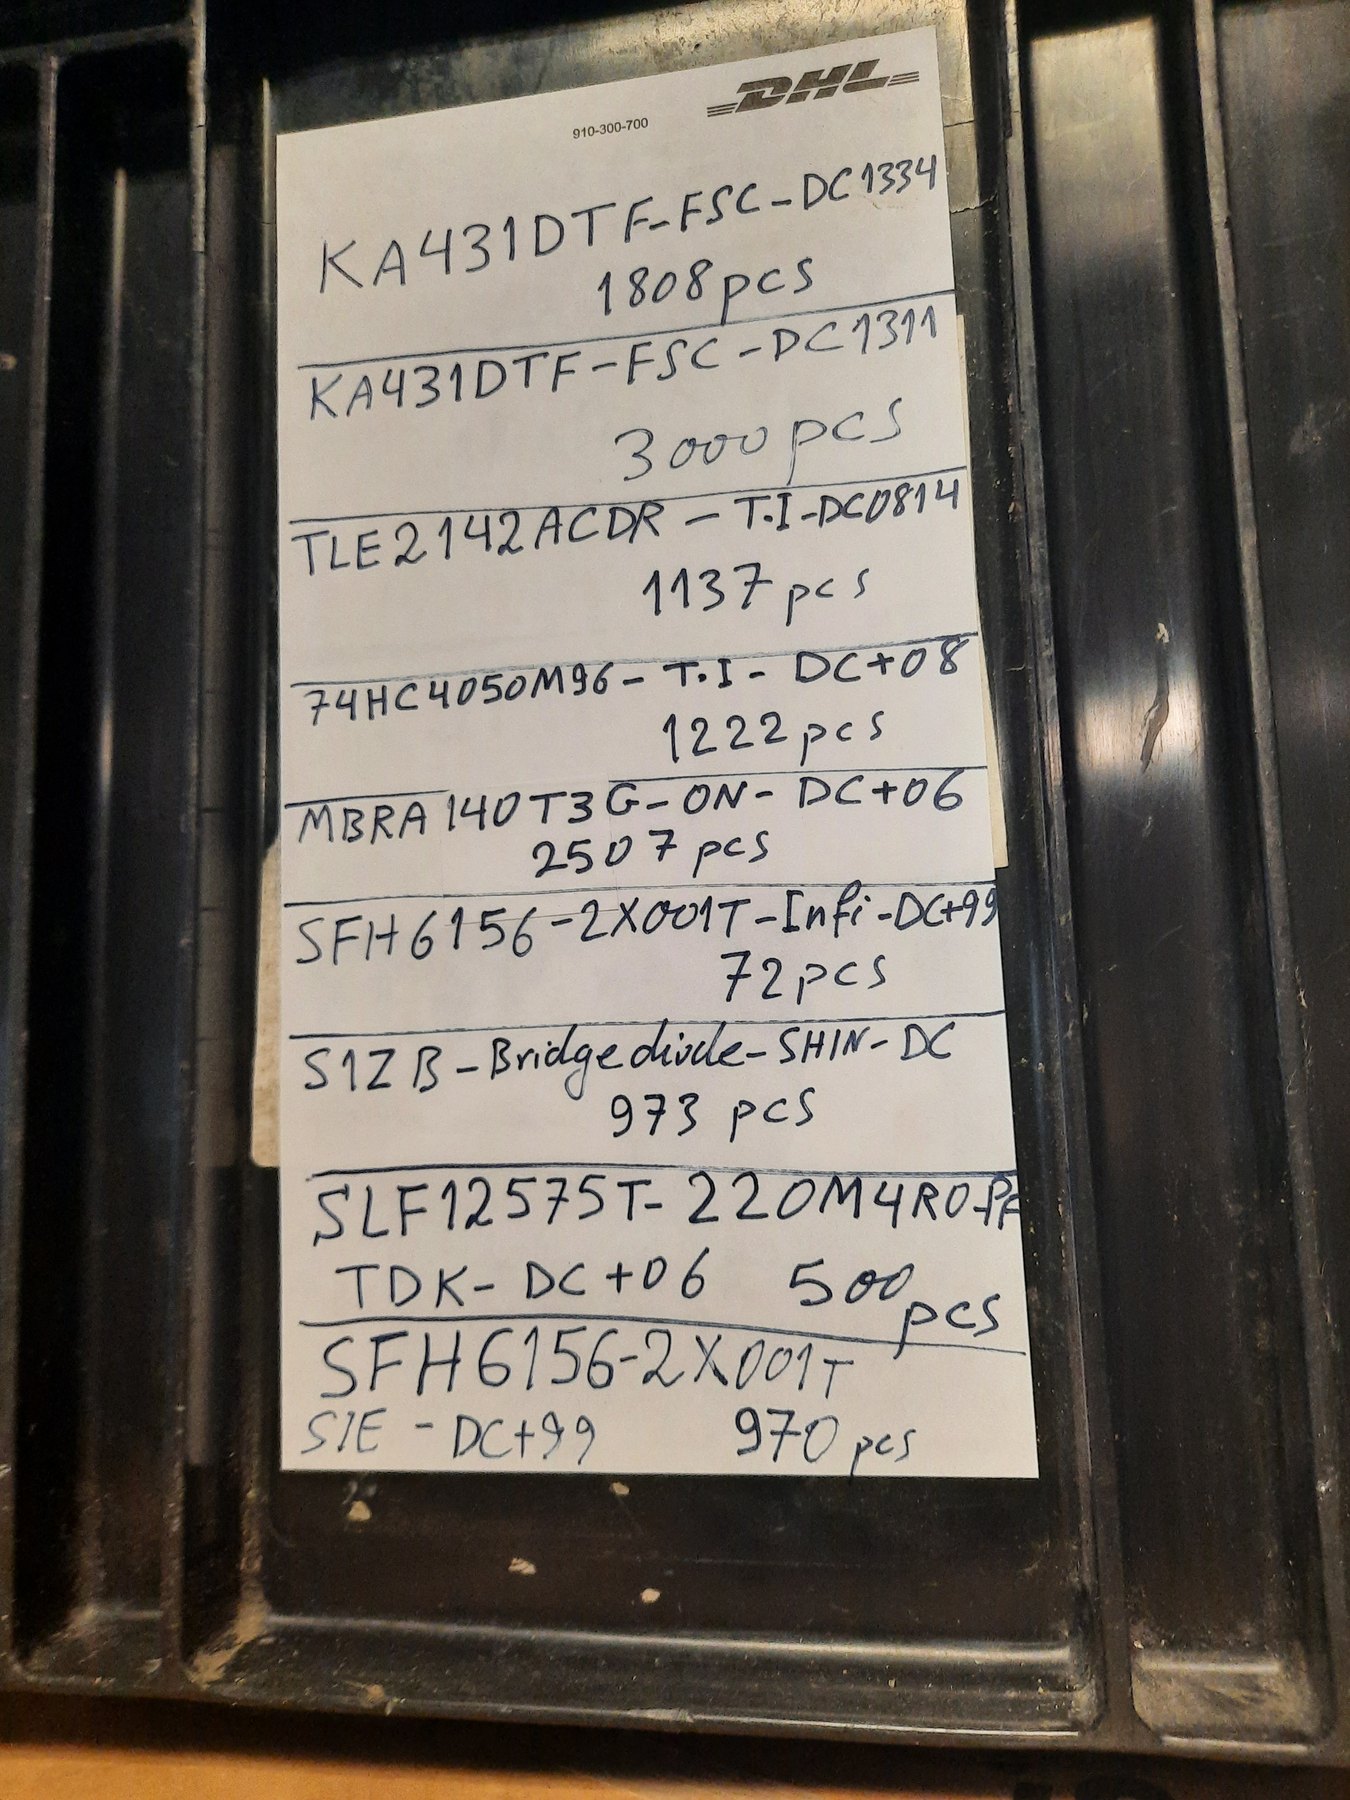 DHL
910-300-700
KA431DTF-FSC-DC1334
1808pcs
KA431DTF-FSC-DC1311
3000 pcs
TLE2142ACDR - T.I-DC0814
1137 pcs
74HC4050M96 - T.I - DC+08
1222 pcs
MBRA140T3G-ON- DC+06
2507 pcs
SFH6156-2X001T-Infi-DC+99
72pcs
S1ZB-Bridgediode-SHIN-DC
973 pcs
SLF12575T-220M4R0-PF
TDK-DC+06 500 pcs
SFH6156-2X001T
SIE - DC+99 970 pcs